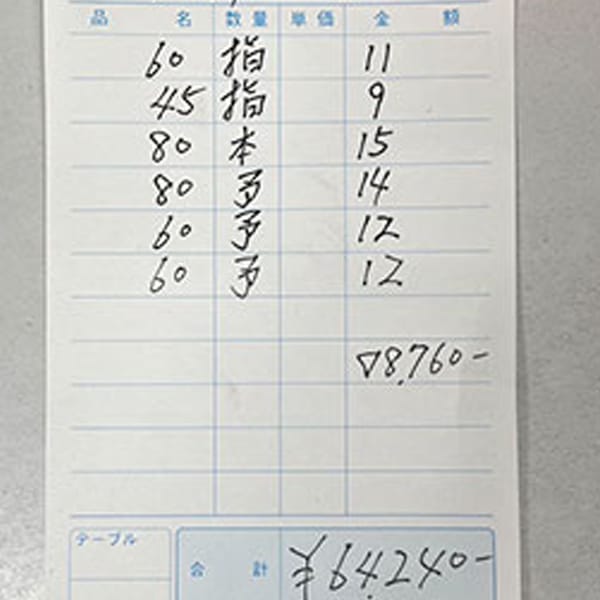 品名 数量 単価 金額
60 指 11
45 指 9
80 本 15
80 予 14
60 予 12
60 予 12
▽8,760-
テーブル
合計 ¥64,240-